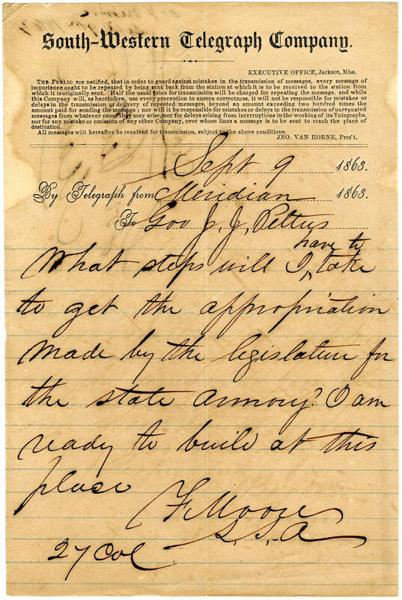 South-Western Telegraph Company.
EXECUTIVE OFFICE, Jackson, Miss.
THE PUBLIC are notified, that in order to guard against mistakes in the transmission of messages, every message of
importance ought to be repeated by being sent back from the station at which it is to be received to the station from
which it is originally sent. Half the usual price for transmission will be charged for repeating the message, and while
this Company will, as heretofore, use every precaution to ensure correctness, it will not be responsible for mistakes or
delays in the transmission or delivery of repeated messages, beyond an amount exceeding two hundred times the
amount paid for sending the message; nor will it be responsible for mistakes or delays in transmission of unrepeated
messages from whatever cause they may arise, nor for delays arising from interruptions in the working of its Telegraphs,
nor for any mistake or omission of any other Company, over whose lines a message is to be sent to reach the place of
destination.
All messages will hereafter be received for transmission, subject to the above conditions.
JNO. VAN HORNE, Pres't.
Sept 9 1863.
By Telegraph from Meridian 1863.
To Gov J. J. Pettus
have to
What steps will I, take
to get the appropriation
made by the legislature for
the state Armory? I am
ready to build at this
place
F. Moore
27 Col